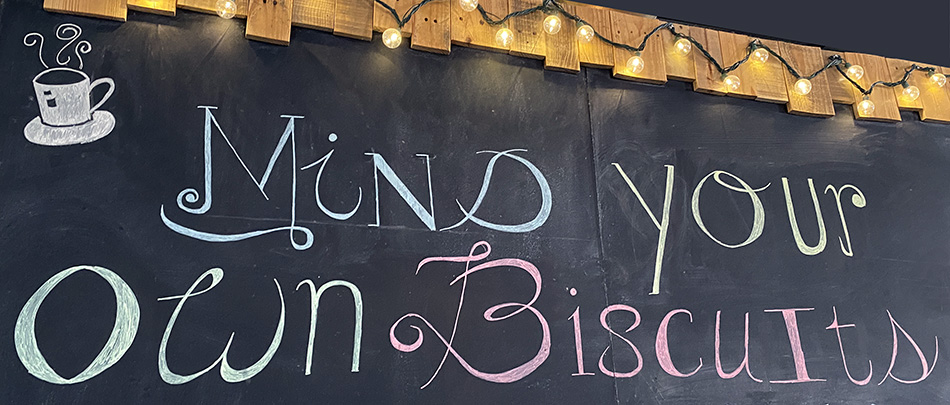 Mind your
Own Biscuits